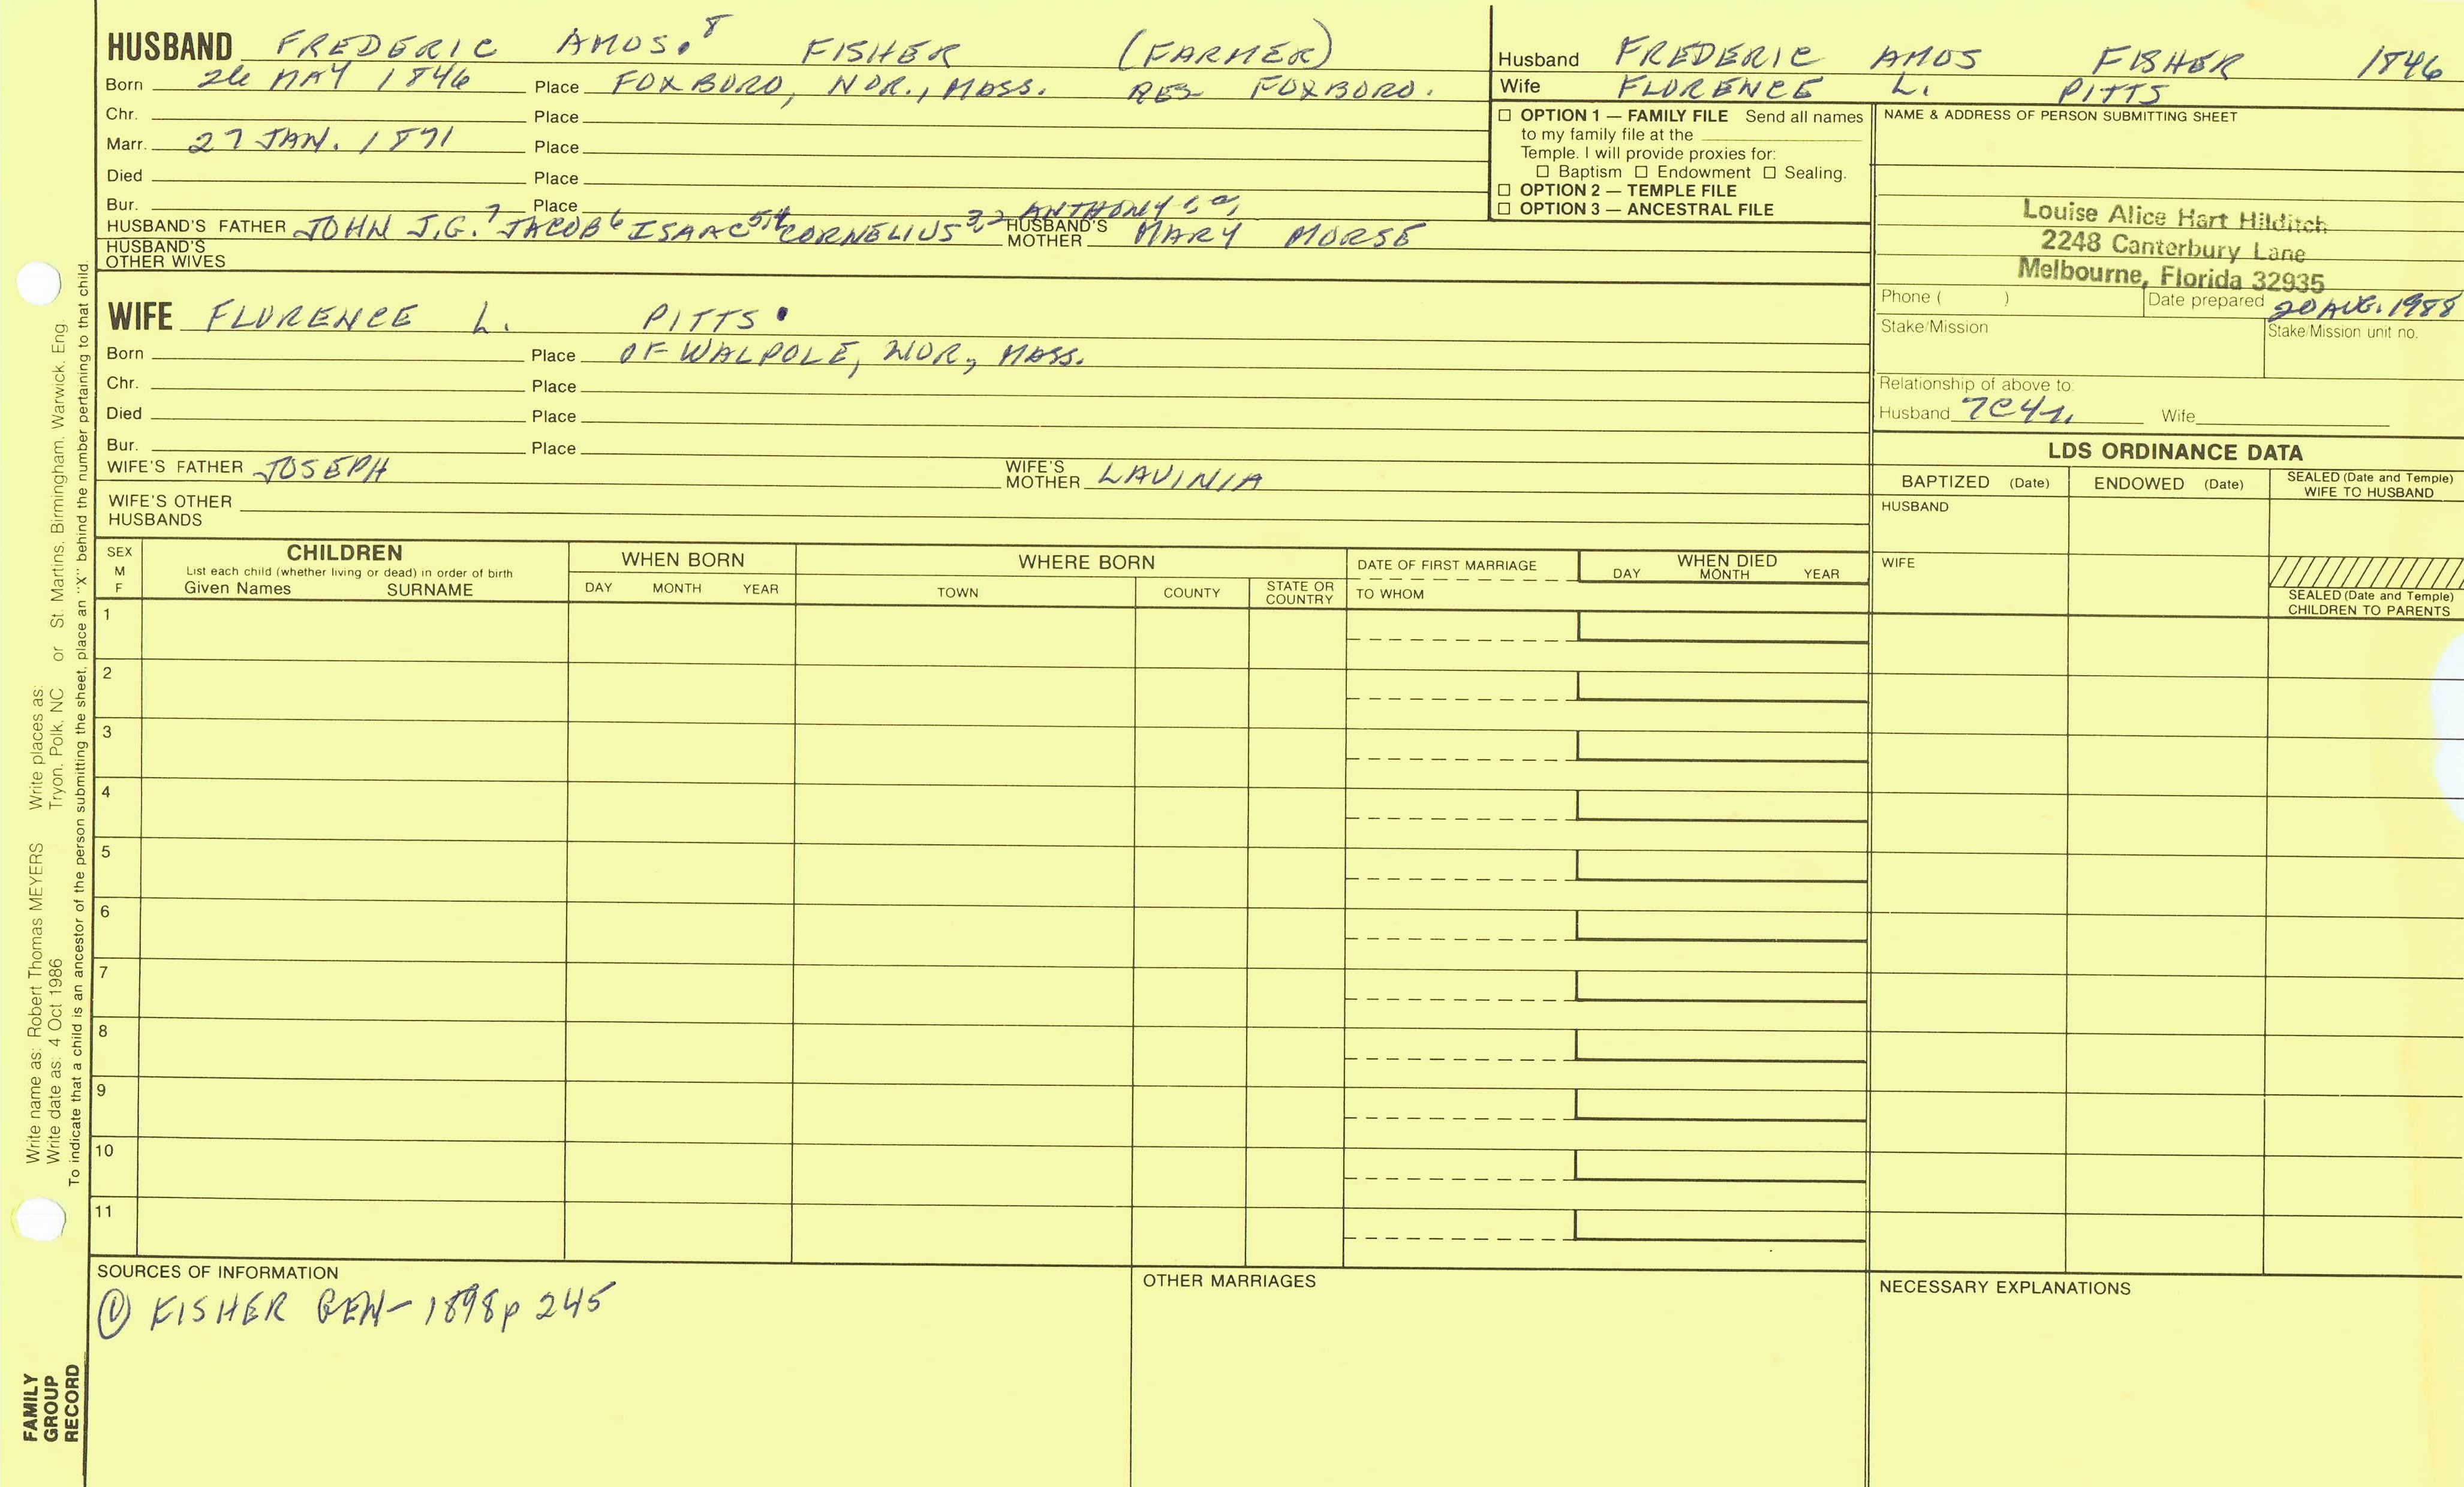 HUSBAND FREDERIC AMOS.8 FISHER (FARMER)
Born 26 MAY 1846 Place FOXBORO, NOR., MASS. RES FOXBORO.
Chr. Place
Marr. 27 JAN. 1871 Place
Died Place
Bur. Place
HUSBAND'S FATHER JOHN J.G.7 JACOB6 ISAAC5,4 CORNELIUS3,2 ANTHONY HUSBAND'S MOTHER MARY MORSE
HUSBAND'S OTHER WIVES
Husband FREDERIC AMOS FISHER 1846
Wife FLORENCE L. PITTS
☐ OPTION 1 — FAMILY FILE Send all names
to my family file at the
Temple. I will provide proxies for:
☐ Baptism ☐ Endowment ☐ Sealing.
☐ OPTION 2 — TEMPLE FILE
☐ OPTION 3 — ANCESTRAL FILE
NAME & ADDRESS OF PERSON SUBMITTING SHEET
Louise Alice Hart Hilditch
2248 Canterbury Lane
Melbourne, Florida 32935
Phone ( ) Date prepared 20 AUG. 1988
Stake/Mission Stake/Mission unit no.
Relationship of above to:
Husband 7C4r. Wife
WIFE FLORENCE L. PITTS
Born Place OF WALPOLE, NOR., MASS.
Chr. Place
Died Place
Bur. Place
WIFE'S FATHER JOSEPH WIFE'S MOTHER LAVINIA
WIFE'S OTHER
HUSBANDS
LDS ORDINANCE DATA
BAPTIZED (Date) ENDOWED (Date) SEALED (Date and Temple) WIFE TO HUSBAND
HUSBAND
WIFE
SEALED (Date and Temple)
CHILDREN TO PARENTS
SEX M F CHILDREN WHEN BORN WHERE BORN DATE OF FIRST MARRIAGE WHEN DIED
List each child (whether living or dead) in order of birth
Given Names SURNAME DAY MONTH YEAR TOWN COUNTY STATE OR COUNTRY TO WHOM DAY MONTH YEAR
1
2
3
4
5
6
7
8
9
10
11
SOURCES OF INFORMATION
① FISHER GEN- 1898 p 245
OTHER MARRIAGES
NECESSARY EXPLANATIONS
Write name as: Robert Thomas MEYERS Write places as:
Write date as: 4 Oct 1986 Tryon, Polk, NC or St. Martins, Birmingham, Warwick, Eng.
To indicate that a child is an ancestor of the person submitting the sheet, place an "X" behind the number pertaining to that child.
FAMILY
GROUP
RECORD